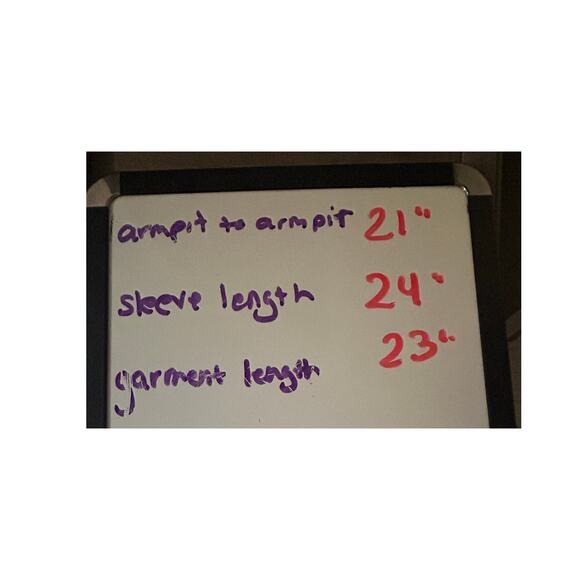 armpit to armpit 21"
sleeve length 24"
garment length 23"